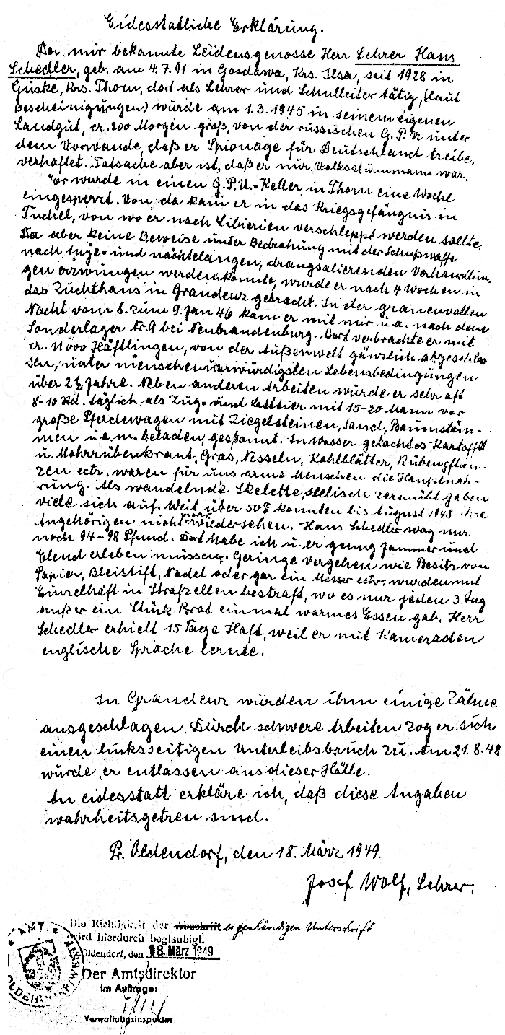 Eidesstattliche Erklärung.
Der mir bekannte Leidensgenosse Herr Lehrer Hans
Schedler, geb. am 4.7.91 in Gosdawa, Krs. , seit 1928 in
Guske, Krs. Thorn, dort als Lehrer und Schulleiter tätig, (laut
Bescheinigungen) wurde am 1.3.1945 in seinem eigenen
Landgut, er. 200 Morgen groß, von der russischen G.P.U. unter
dem Vorwande, daß er Spionage für Deutschland treibe,
verhaftet. Tatsache aber ist, daß er nur Volkssturmmann war.
Er wurde in einen G.P.U.-Keller, in Thorn eine Woche
eingesperrt. Von da kam er in das Kriegsgefängnis in
Tuchel, von wo er nach Sibirien verschleppt werden sollte.
Da aber keine Beweise unter Bedrohung mit der Schußwaffe
nach tage- und nächtelangen, drangsalierenden
gen erzwingen werden konnte, wurde er nach 4 Wochen in
das Zuchthaus in Graudenz gebracht. In der grauenvollen
Nacht vom 8. zum 9. Jan 46 kam er mit mir u.a. nach dem
Sonderlager Nr. 9 bei Neubrandenburg. Dort verbrachte er mit
Häftlingen, von der Außenwelt gänzlich abgeschlos-
sen, unter menschenunwürdigsten Lebensbedingungen
über 2½ Jahre. Neben anderen Arbeiten wurde er sehr oft
8-10 Std. täglich als Zug- und Lasttier mit 15-20 Mann vor
große Pferdewagen mit Ziegelsteinen, Sand, Baumstäm-
men u.a.m. beladen, gespannt. In Wasser gekochtes Kartoffel
u. Mohrrübenkraut, Gras, Nesseln, Kohlblätter, Rübenpflan-
zen etz. waren für uns arme Menschen die Hauptnah-
rung. Als wandelnde Skelette, seelisch zermürbt gaben
viele sich auf. Weit über 50% konnten bis August 1948 ihre
Angehörigen nicht wiedersehen. Hans Schedler wog nur
noch 94-98 Pfund. Dort habe ich u. er genug Jammer und
Elend erleben müssen. Geringe Vergehen wie Besitz von
Papier, Bleistift, Nadel oder gar ein Messer etz. wurden mit
Einzelhaft in Strafzellen bestraft, wo es nur jeden 3 Tag
außer ein Stück Brot einmal warmes Essen gab. Herr
Schedler erhielt 15 Tage Haft, weil er mit Kameraden
englische Sprache lernte.
In Graudenz wurden ihm einige Zähne
ausgeschlagen. Durch schwere Arbeiten zog er sich
einen linksseitigen Unterleibsbruch zu. Am 21.8.48
wurde er entlassen aus dieser Hölle.
An eidesstatt erkläre ich, daß diese Angaben
wahrheitsgetreu sind.
Pr. Oldendorf, den 18. März 1949.
Josef Wolf, Lehrer.
Die Richtigkeit der eigenhändigen Unterschrift
wird hierdurch beglaubigt.
Oldendorf, den 18. März 1949
Der Amtsdirektor
Im Auftrage:
Verwaltungsinspektor
AMT